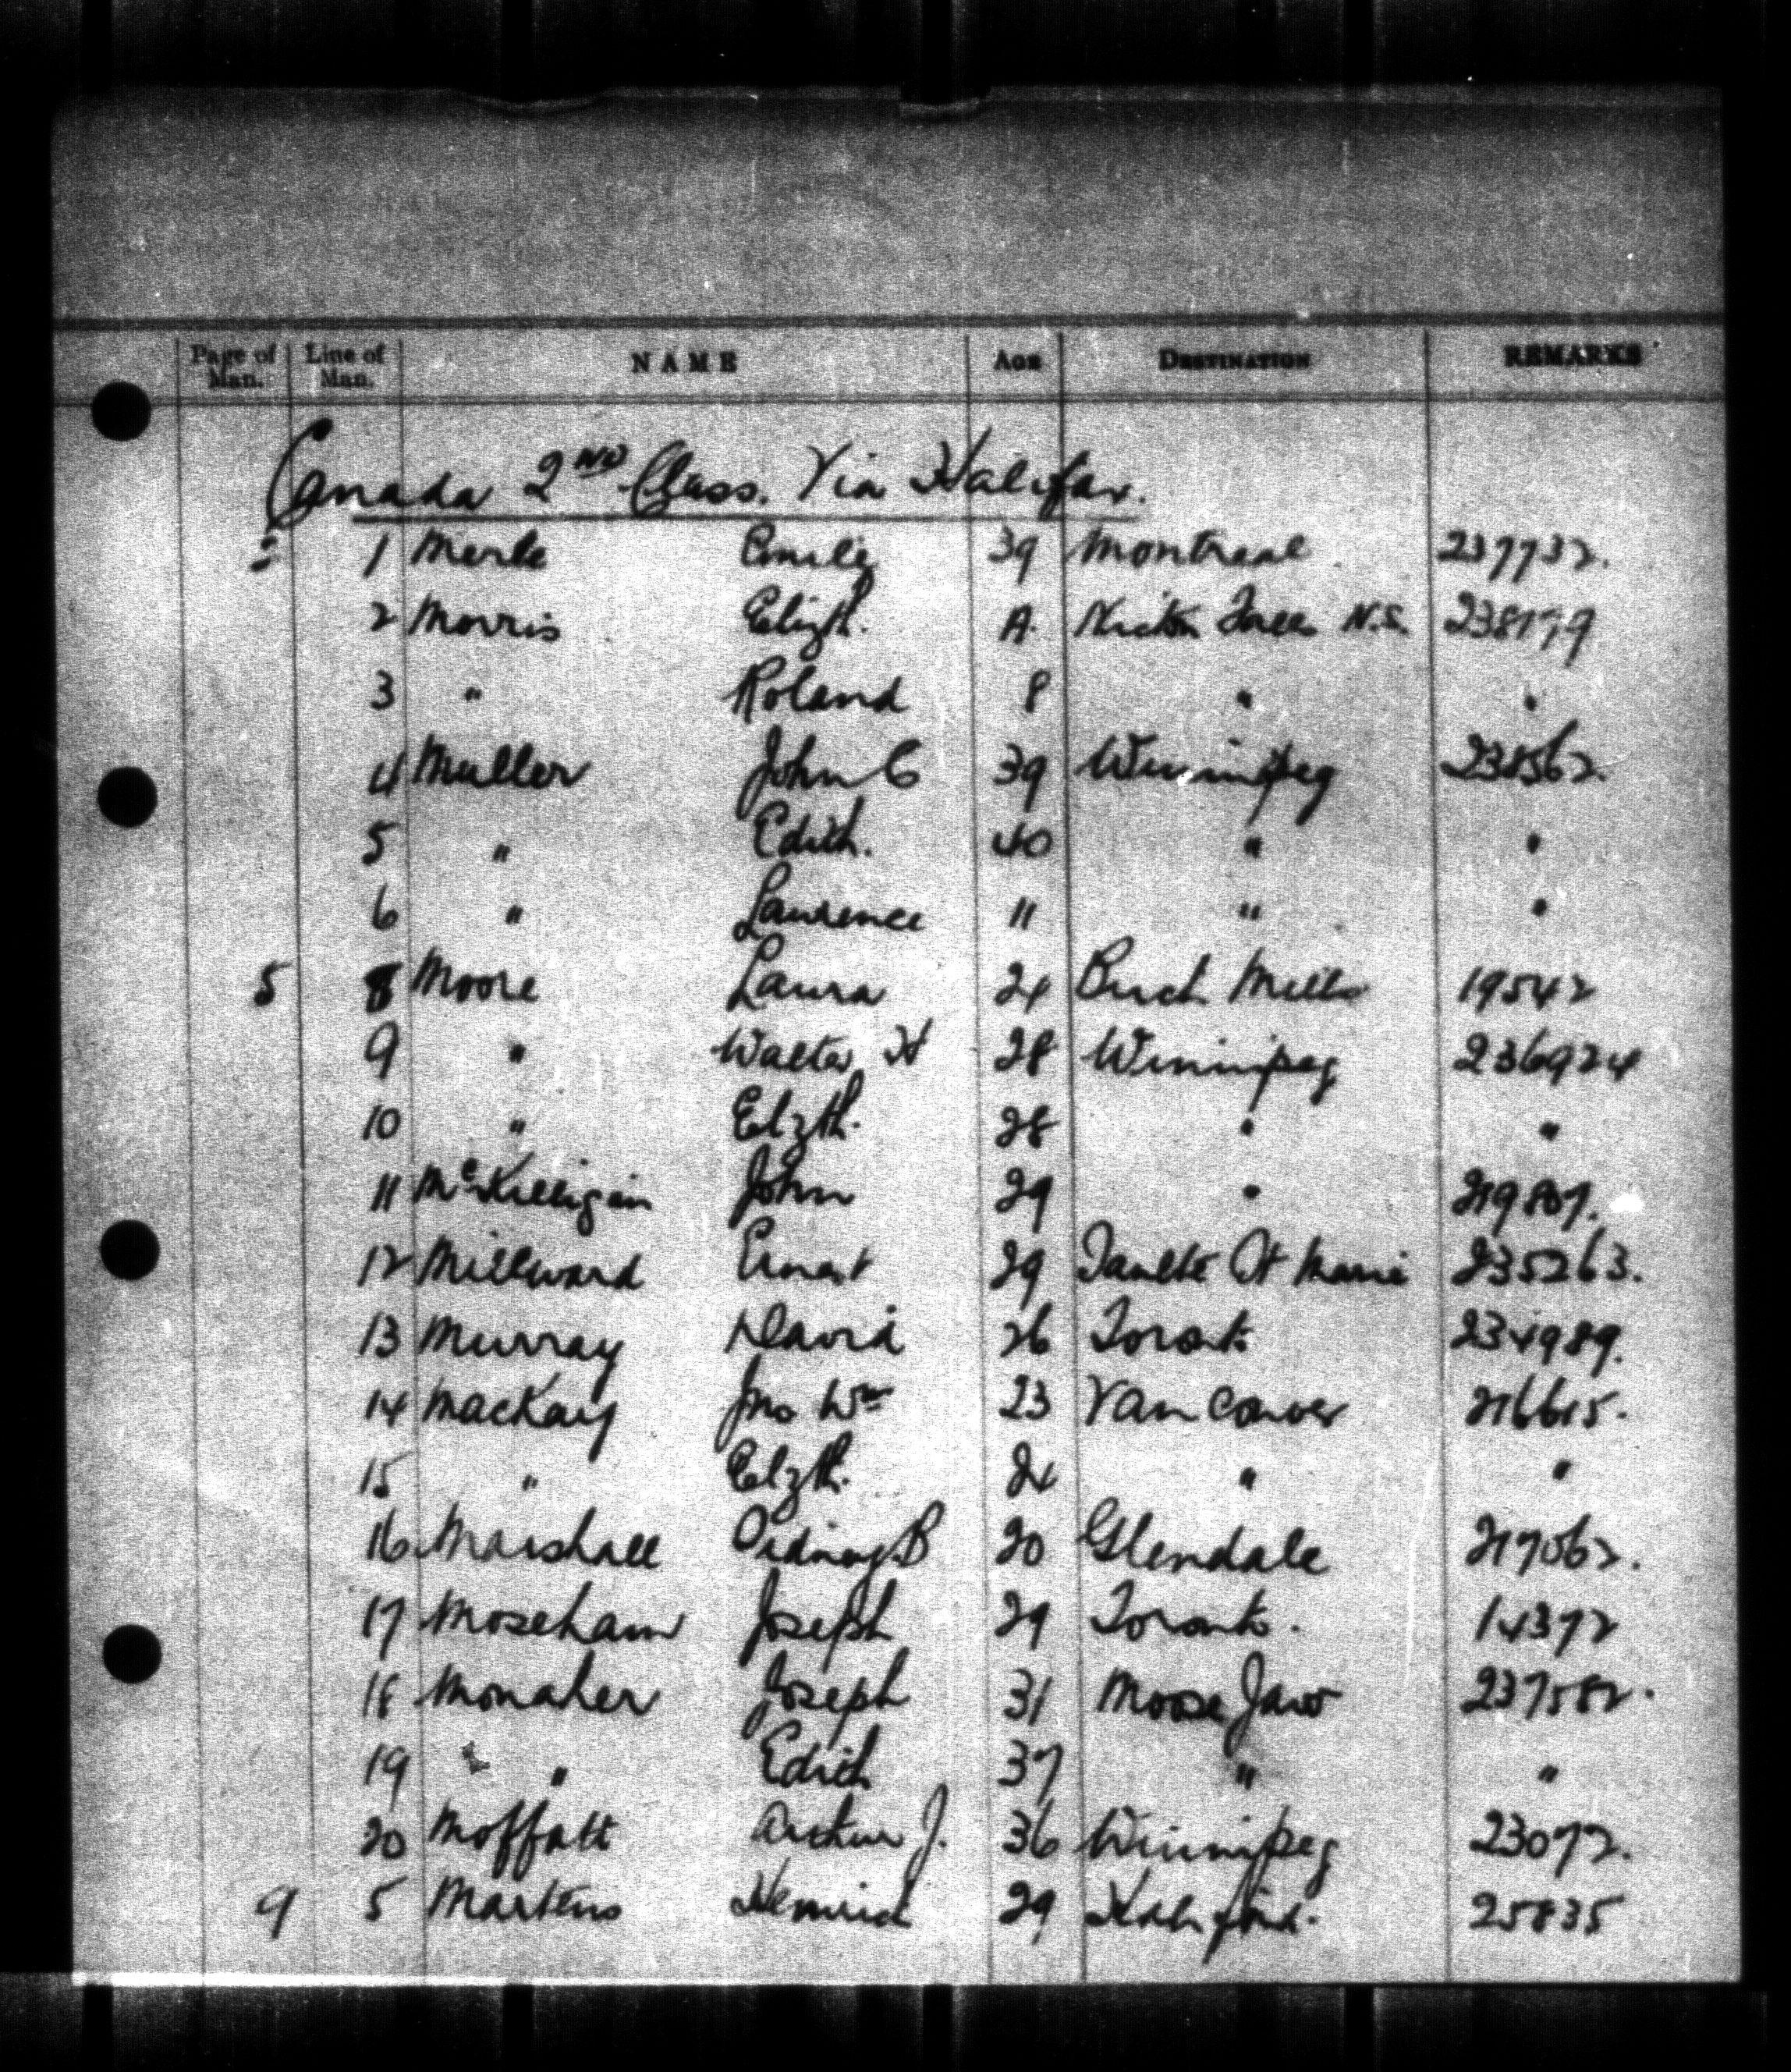 Page of Man. Line of Man. NAME AGE DESTINATION REMARKS
Canada 2ND Class. Via Halifax.
1 Merle Emile 39 Montreal 237732.
2 Morris Elizth. A. Nictau Falls N.S. 238179
3 " Roland 8 " "
4 Muller John C 39 Winnipeg 238562.
5 " Edith. 40 " "
6 " Laurence 11 " "
5 8 Moore Laura 24 Birch Mills 19542
9 " Walter H 28 Winnipeg 236924
10 " Elzth. 28 " "
11 McKilligin John 29 " 219807.
12 Millward Ernest 29 Saulte St Marie 235263.
13 Murray David 26 Toronto 234989.
14 MacKay Jno Wm 23 Vancouver 216615.
15 " Elzth. 24 " "
16 Marshall Sidney B 20 Glendale 217062.
17 Moseham Joseph 29 Toronto. 14372
18 Monaher Joseph 31 Moose Jaw 237582.
19 " Edith 37 " "
20 Moffatt Arthur J. 36 Winnipeg 23072.
9 5 Martens Heinrich 29 25835